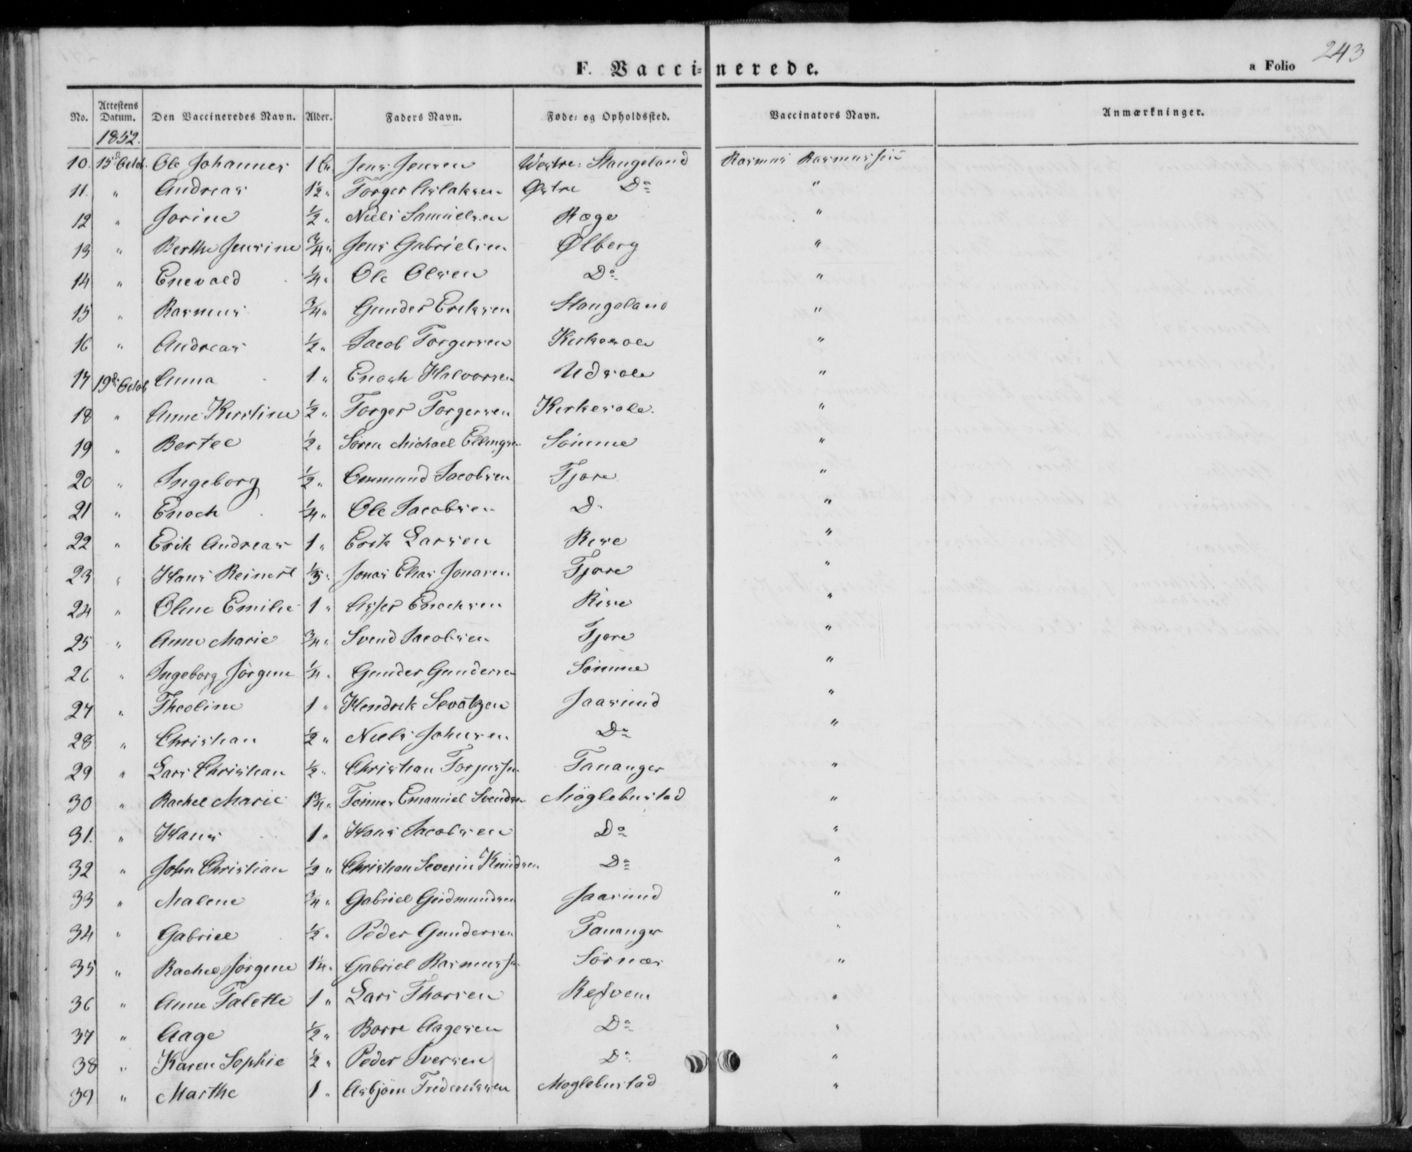 243
F. Vaccinerede.
a Folio
No. Attestens Datum. Den Vaccineredes Navn. Alder. Faders Navn. Føde- og Opholdssted. Vaccinators Navn. Anmærkninger.
1852.
10. 15d Octob. Ole Johannes 1 Jens Jensen Westre Stangeland Rasmus Rasmussen
11. " Andreas 1½ " Torger Aslaksen Østre Do "
12 " Jorine ½ " Niels Samuelsen Hæge "
13 " Berthe Jensine ¾ " Jens Gabrielsen Ølberg "
14 " Enevald ¼ " Ole Olsen Do "
15 " Rasmus ¾ " Gunder Eriksen Stangeland "
16 " Andreas ½ " Jacob Torgersen Kirkesole "
17 19d Octob. Anna 1 " Enoch Halvorsen Udsole "
18 " Anne Kirstine ½ " Torger Torgersen Kirkesole. "
19 " Bertel ½ " Søren Michael Sømme "
20 " Ingeborg ½ " Ommund Jacobsen Tjore "
21 " Enoch ¼ " Ole Jacobsen Do "
22 " Erik Andreas 1 " Erik Larsen Risse "
23 " Hans Reinert " Jonas Elias Jonasen Tjore "
24 " Oline Emilie 1 " Asser Enochsen Risse "
25 " Anne Marie ¾ " Svend Jacobsen Tjore "
26 " Ingeborg Jørgine " Gunder Gundersen Sømme "
27 " Theoline 1 " Hendrik Jaasund "
28 " Christian ½ " Niels Johnsen Do "
29 " Lars Christian ½ " Christian Tananger
30 " Rachel Marie 1¾ " Tønnes Emanuel Svendsen Møglebustad "
31. " Hans 1 " Hans Jacobsen Do "
32 " John Christian ½ " Christian Severin Knudsen Do "
33 " Malene ¾ " Gabriel Gudmundsen Jaasund "
34 " Gabriel ½ " Peder Gundersen Tananger "
35 " Rachel Jørgine " Gabriel Rasmussen Sørnæs "
36 " Anne Talette 1 " Lars Thorsen Refvem "
37 " Aage ½ " Borre Aagesen Do "
38 " Karen Sophie ½ " Peder Iversen Do "
39 " Marthe 1 " Asbjørn Frederiksen Moglebustad "